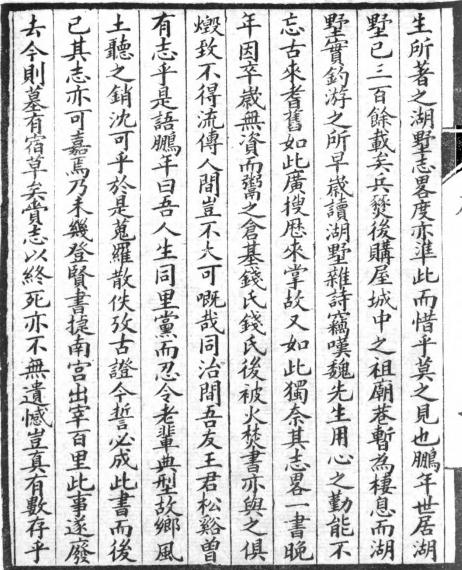 生所著之湖墅志畧度亦準此而惜乎莫之見也鵬年世居湖
墅已三百餘載矣兵燹後購屋城中之祖廟巷暫為棲息而湖
墅實釣游之所早歲讀湖墅雜詩竊嘆魏先生用心之勤能不
忘古來耆舊如此廣搜歷來掌故又如此獨奈其志畧一書晚
年因卒歲無資而鬻之倉基錢氏錢氏後被火焚書亦與之俱
燬致不得流傳人間豈不大可嘅哉同治間吾友王君松谿曽
有志乎是語鵬年曰吾人生同里黨而忍令老輩典型故鄉風
土聽之銷沈可乎於是蒐羅散佚攷古證今誓必成此書而後
已其志亦可嘉焉乃未幾登賢書捷南宮出宰百里此事遂廢
去今則墓有宿草矣賫志以終死亦不無遺憾豈真有數存乎